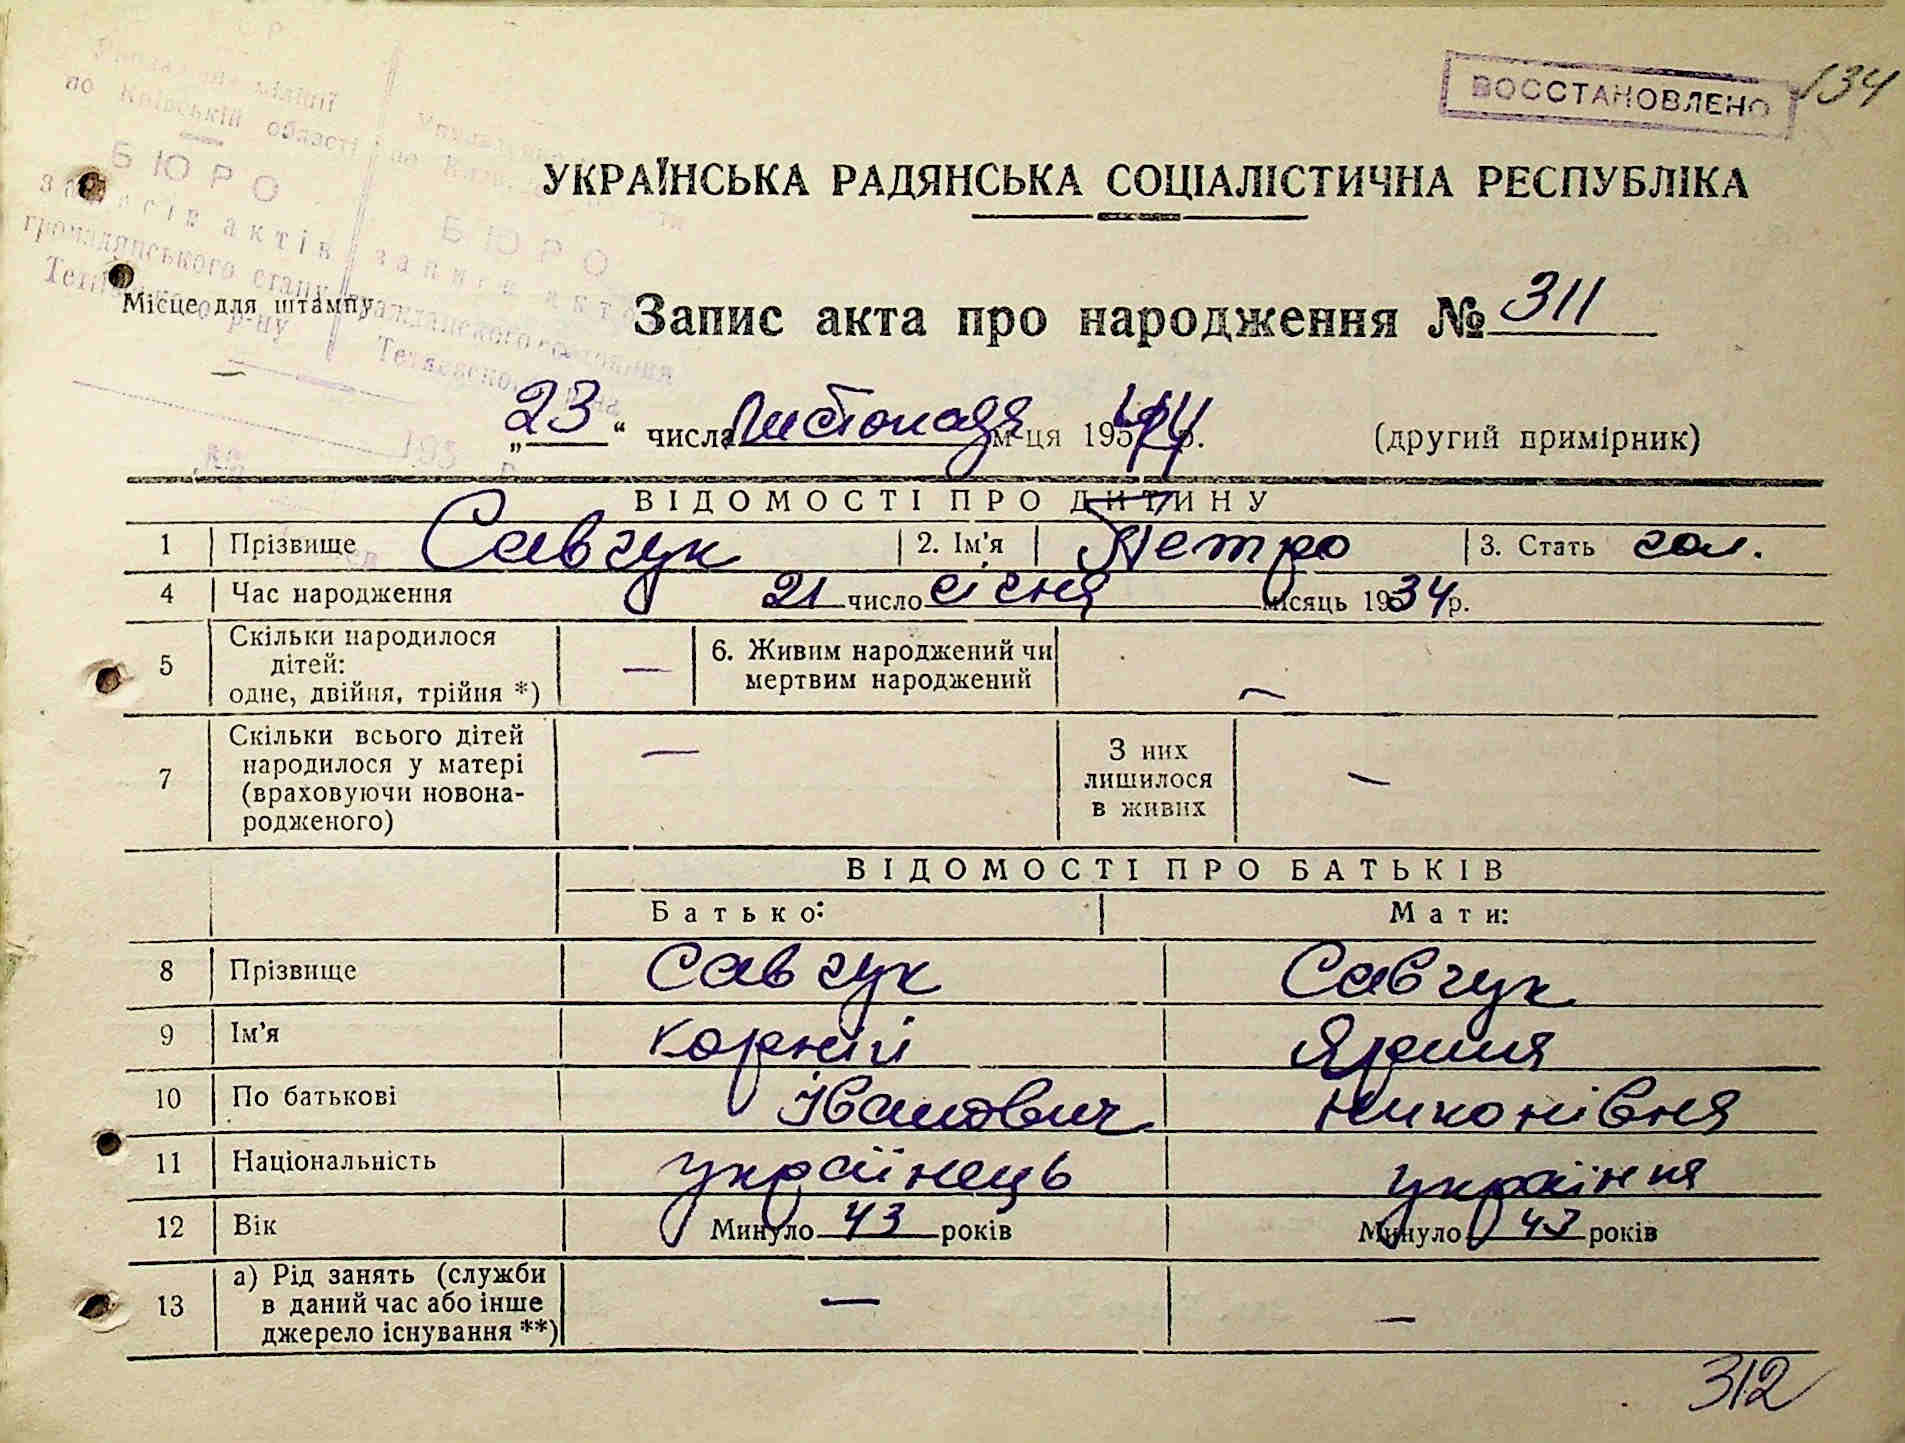 ВОССТАНОВЛЕНО
134
УКРАЇНСЬКА РАДЯНСЬКА СОЦІАЛІСТИЧНА РЕСПУБЛІКА
по Київській області
БЮРО
записів актів
громадянського стану
БЮРО
Місце для штампу
Запис акта про народження № 311
„23“ числа листопада м-ця 195 44 р. (другий примірник)
195 р.
ВІДОМОСТІ ПРО ДИТИНУ
1 Прізвище Савчук 2. Ім'я Петро 3. Стать чол.
4 Час народження 21 число січня місяць 1934 р.
5 Скільки народилося дітей: одне, двійня, трійня *) — 6. Живим народжений чи мертвим народжений —
7 Скільки всього дітей народилося у матері (враховуючи новонародженого) — З них лишилося в живих —
ВІДОМОСТІ ПРО БАТЬКІВ
Батько: Мати:
8 Прізвище Савчук Савчук
9 Ім'я Корній Ярина
10 По батькові Іванович Никонівна
11 Національність українець українка
12 Вік Минуло 43 років Минуло 43 років
13 а) Рід занять (служби в даний час або інше джерело існування **) — —
312